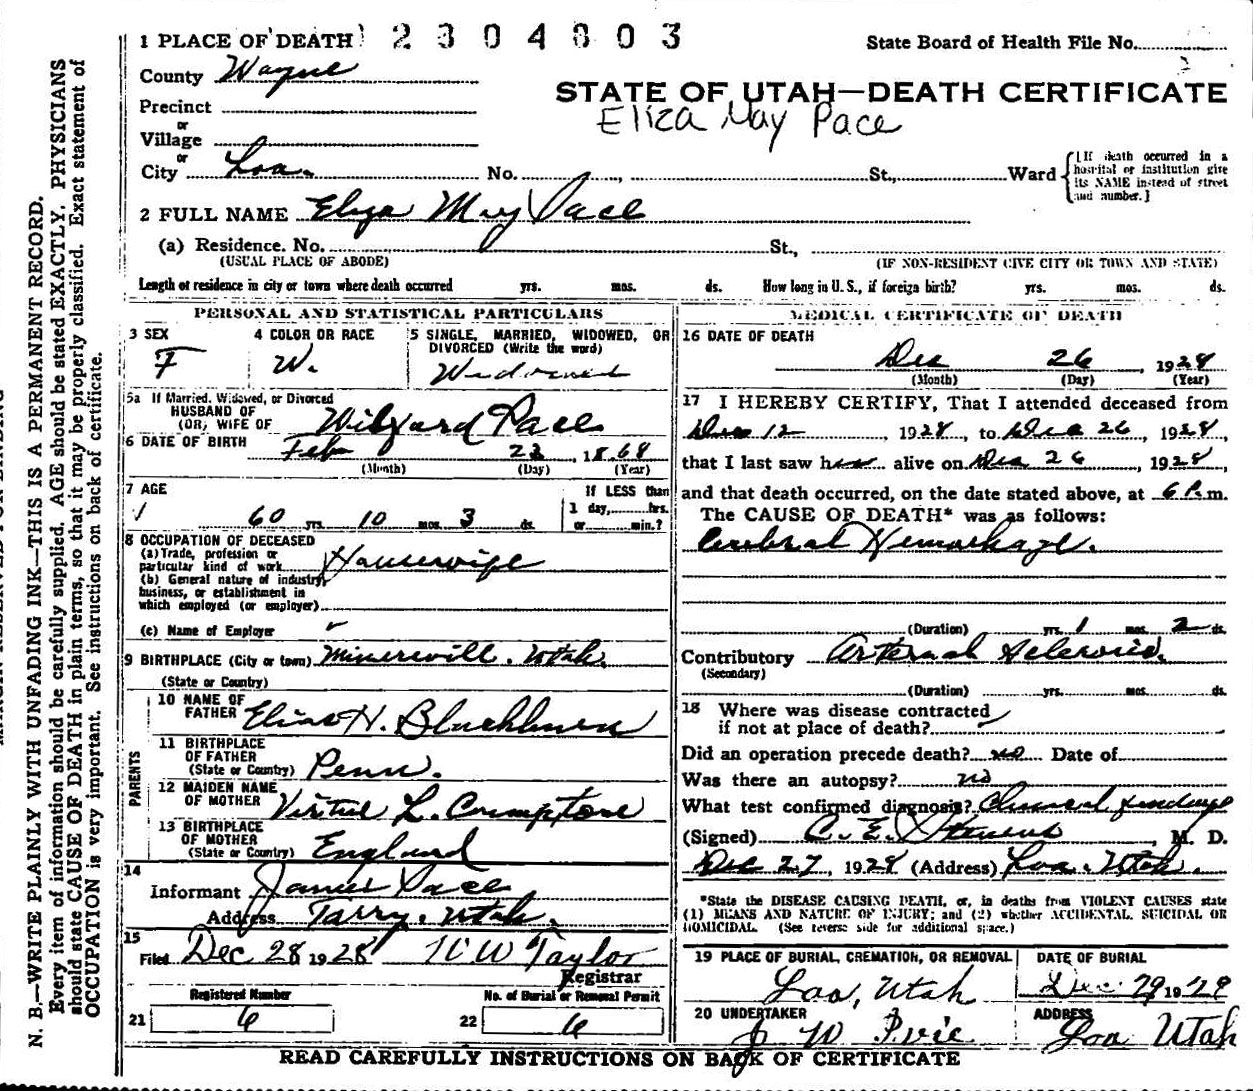 1 PLACE OF DEATH 2304803 State Board of Health File No.
County Wayne
STATE OF UTAH—DEATH CERTIFICATE
Precinct
Eliza May Pace
or
Village
or
City Loa. No. , St., Ward {[If death occurred in a hospital or institution give its NAME instead of street and number.]
2 FULL NAME Eliza May Pace
(a) Residence. No. St.,
(USUAL PLACE OF ABODE) (IF NON-RESIDENT GIVE CITY OR TOWN AND STATE)
Length of residence in city or town where death occurred yrs. mos. ds. How long in U. S., if foreign birth? yrs. mos. ds.
PERSONAL AND STATISTICAL PARTICULARS
3 SEX
F
4 COLOR OR RACE
W.
5 SINGLE, MARRIED, WIDOWED, OR
DIVORCED (Write the word)
Widowed
5a If Married, Widowed, or Divorced
HUSBAND OF
(OR) WIFE OF Pace
6 DATE OF BIRTH Feb 23, 1868
(Month) (Day) (Year)
7 AGE
60 yrs. 10 mos. 3 ds.
If LESS than
1 day, hrs.
or min.?
8 OCCUPATION OF DECEASED
(a) Trade, profession or
particular kind of work Housewife
(b) General nature of industry,
business, or establishment in
which employed (or employer)
(c) Name of Employer
9 BIRTHPLACE (City or town) Minersvill. Utah.
(State or Country)
PARENTS
10 NAME OF
FATHER Elias H. Blackburn
11 BIRTHPLACE
OF FATHER
(State or Country) Penn.
12 MAIDEN NAME
OF MOTHER Virtue L. Cromptone
13 BIRTHPLACE
OF MOTHER
(State or Country) England
14
Informant James Pace
Address Utah.
15
Filed Dec 28 1928 W W Taylor
Registrar
Registered Number
21 6
No. of Burial or Removal Permit
22 6
MEDICAL CERTIFICATE OF DEATH
16 DATE OF DEATH
Dec 26 1928
(Month) (Day) (Year)
17 I HEREBY CERTIFY, That I attended deceased from
Dec 12, 1928, to Dec 26, 1928,
that I last saw her alive on Dec 26, 1928,
and that death occurred, on the date stated above, at 6 P.m.
The CAUSE OF DEATH* was as follows:
Cerebral Hemorhage.
(Duration) yrs. 1 mos. 2 ds.
Contributory Arterial Sclerosis.
(Secondary)
(Duration) yrs. mos. ds.
18 Where was disease contracted
if not at place of death?
Did an operation precede death? no Date of
Was there an autopsy? no
What test confirmed diagnosis? Clinical findings
(Signed) C. E. Stevens M. D.
Dec 27, 1928 (Address) Loa. Utah.
*State the DISEASE CAUSING DEATH, or, in deaths from VIOLENT CAUSES state
(1) MEANS AND NATURE OF INJURY; and (2) whether ACCIDENTAL, SUICIDAL OR
HOMICIDAL. (See reverse side for additional space.)
19 PLACE OF BURIAL, CREMATION, OR REMOVAL
Loa, Utah
DATE OF BURIAL
Dec. 29 1928
20 UNDERTAKER
J W
ADDRESS
Loa Utah
READ CAREFULLY INSTRUCTIONS ON BACK OF CERTIFICATE
N. B.—WRITE PLAINLY WITH UNFADING INK—THIS IS A PERMANENT RECORD.
Every item of information should be carefully supplied. AGE should be stated EXACTLY. PHYSICIANS
should state CAUSE OF DEATH in plain terms, so that it may be properly classified. Exact statement of
OCCUPATION is very important. See instructions on back of certificate.